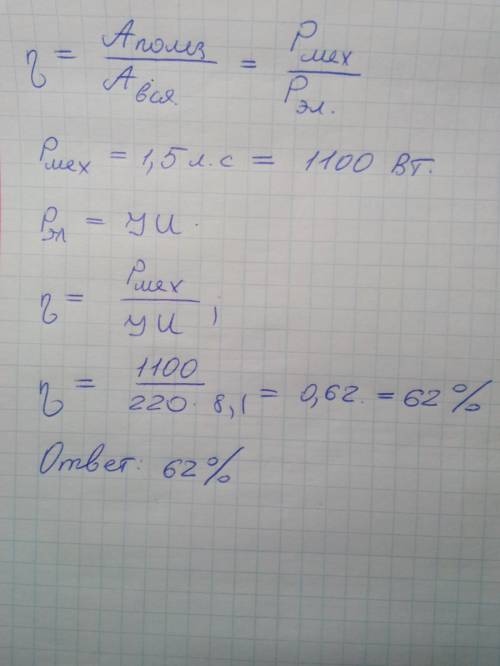 η = Aполез / Aвся = Pмех / Pэл.
Pмех = 1,5 л.с = 1100 Вт.
Pэл = УИ.
η = Pмех / УИ ;
η = 1100 / 220 · 8,1 = 0,62. = 62%
Ответ: 62%